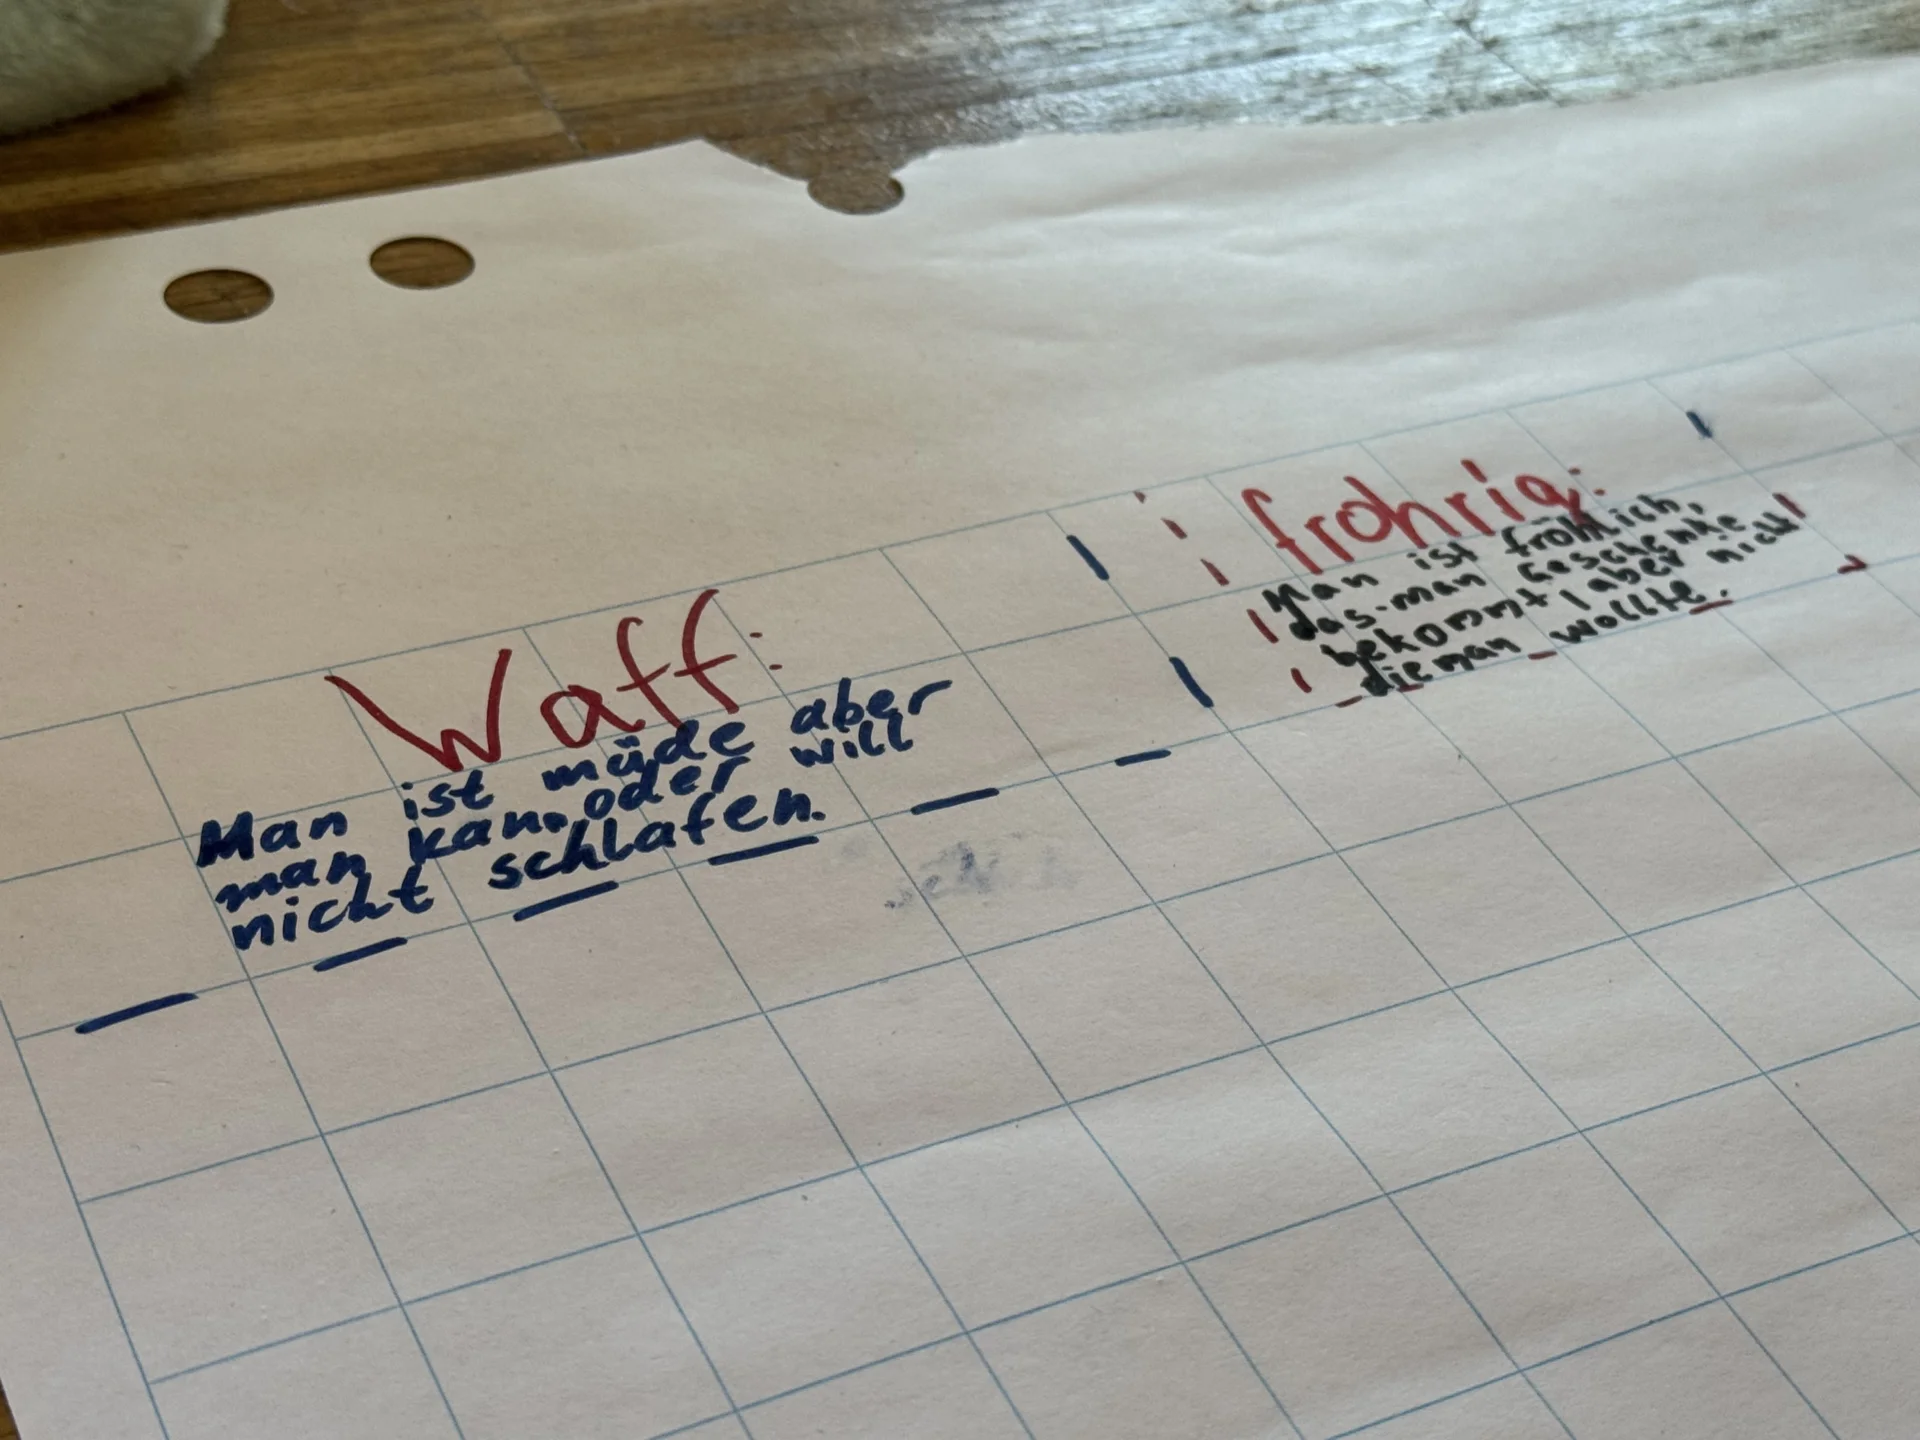 Waff:
Man ist müde aber
man kan. oder will
nicht schlafen.
frohrig:
Man ist fröhlich,
das man Geschenke
bekommt aber nicht
die man wollte.